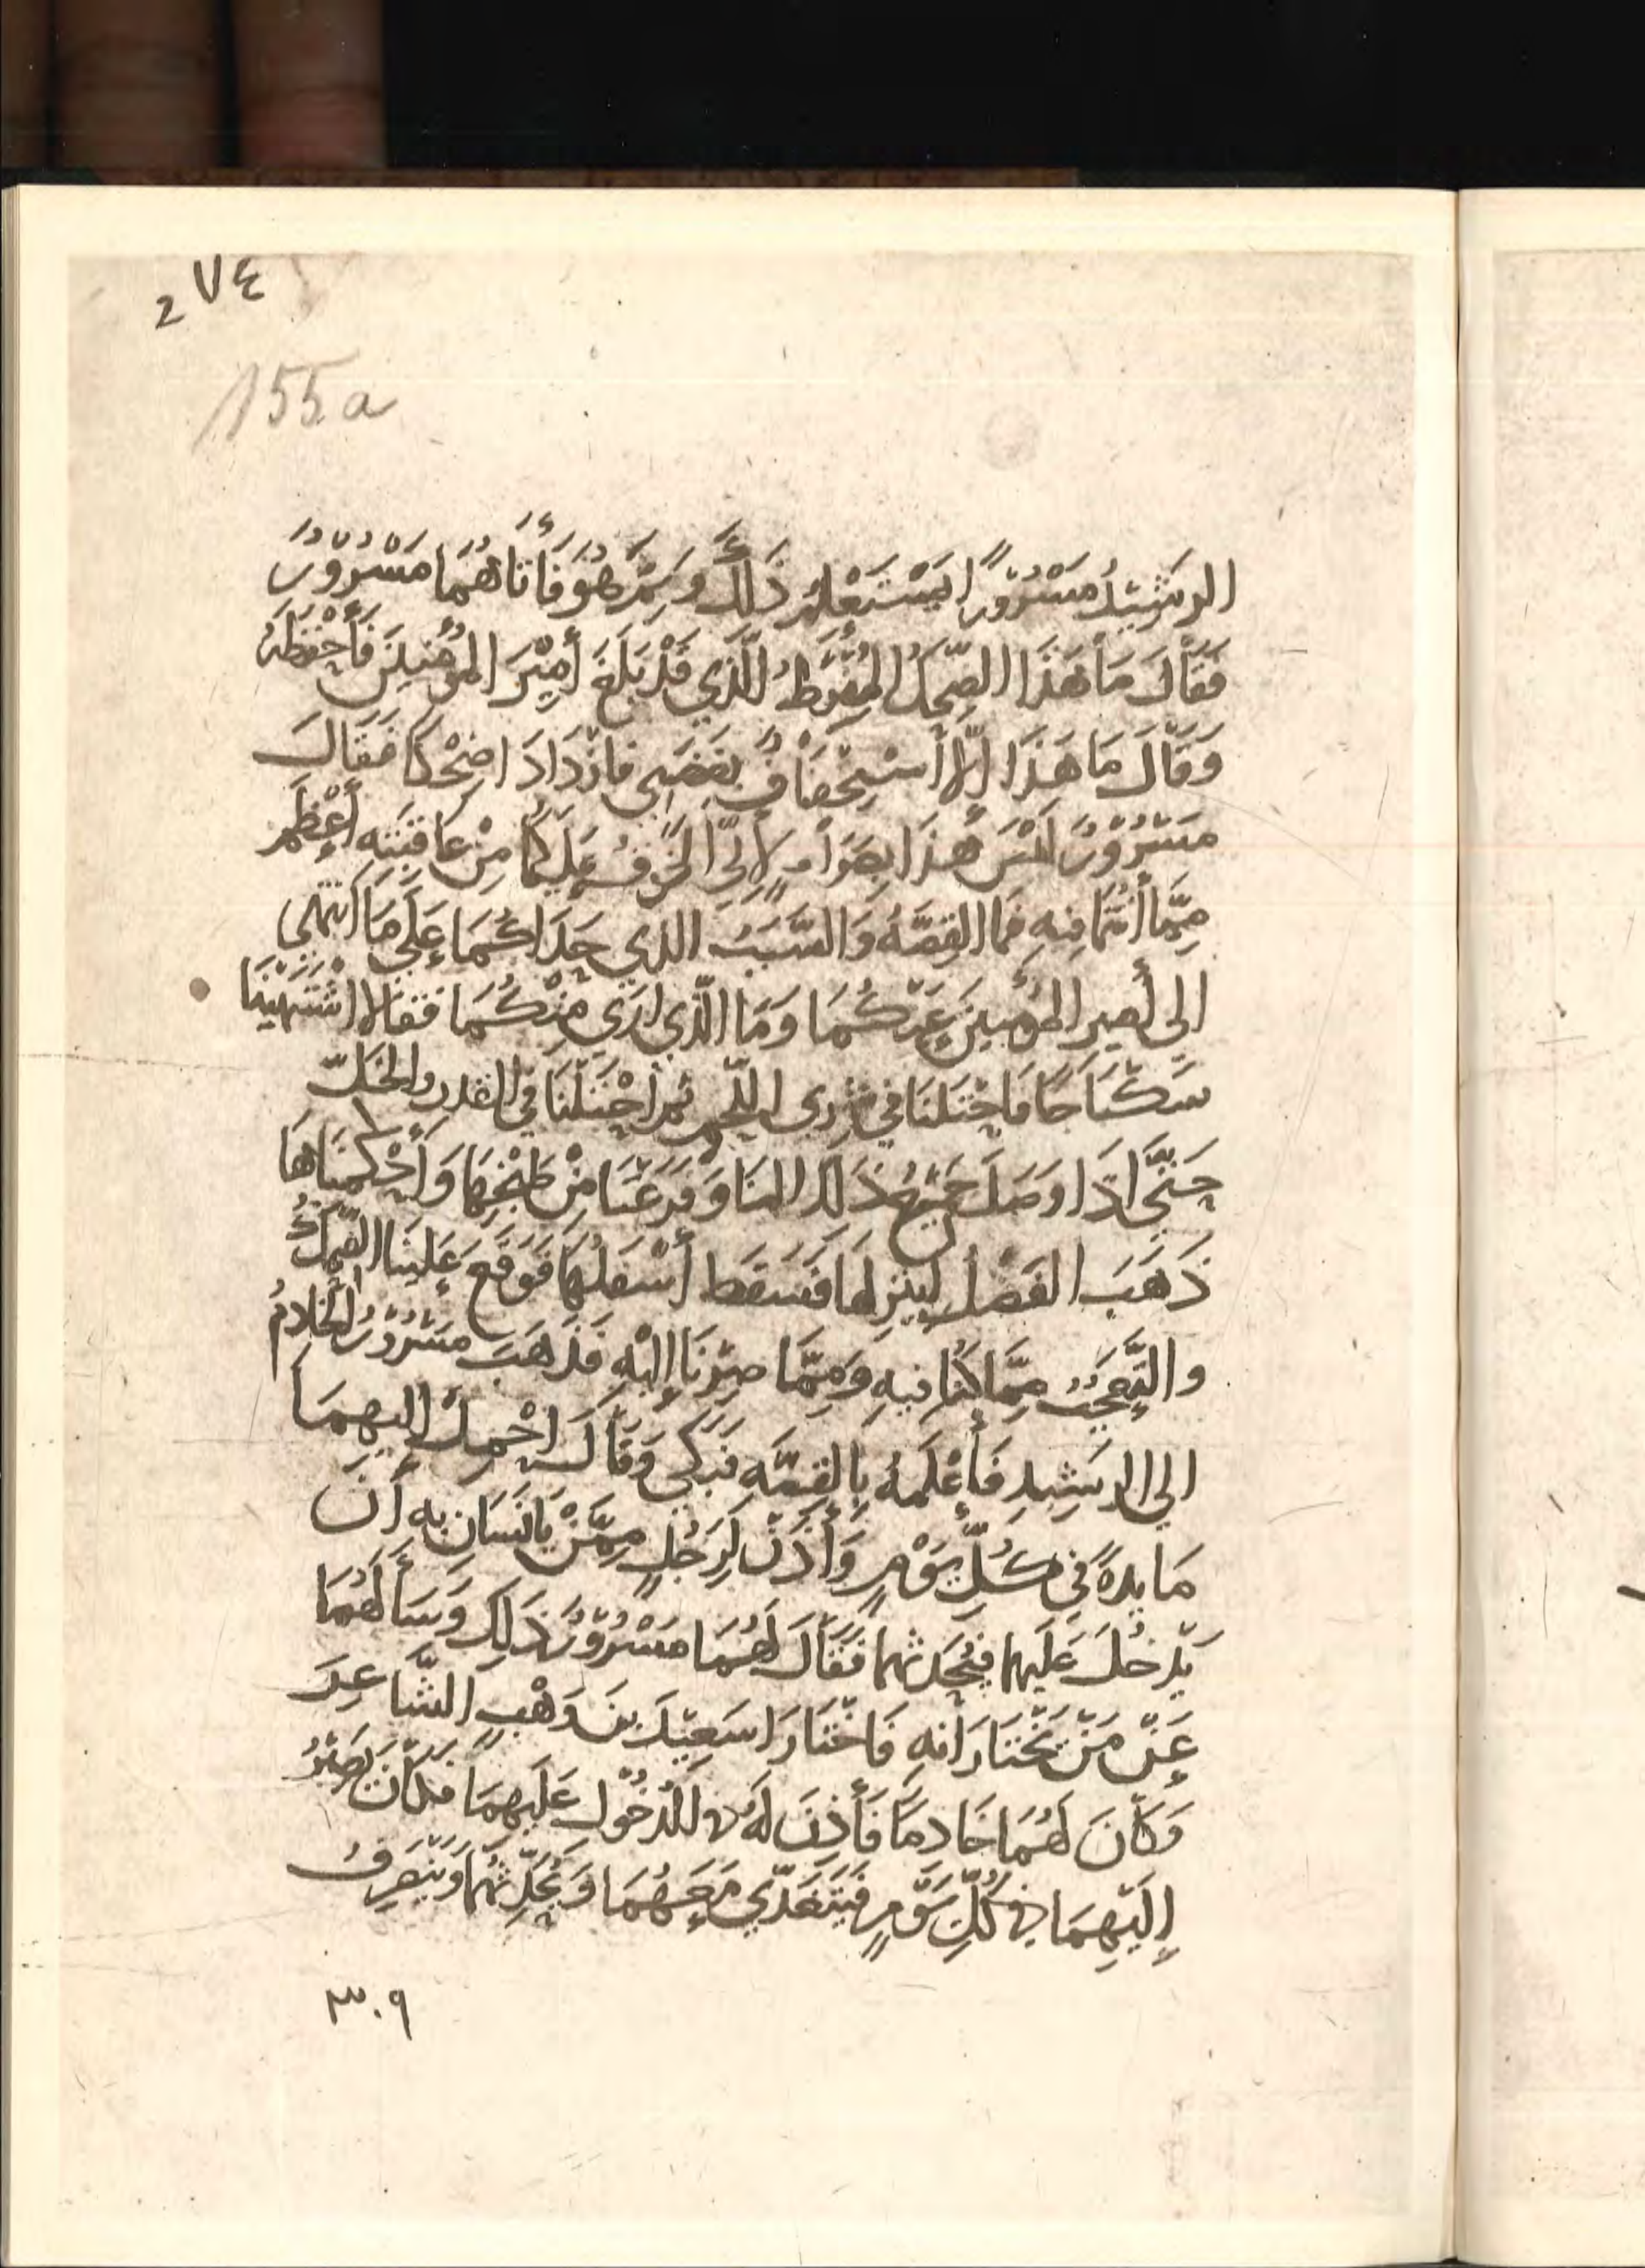 ٢٧٤
155a
الرشيدُ مَسْرُوْرًا ليَسْتَعْلِمَ ذَلِكَ وَمِمَّ هُوَ فَأَتَاهُمَا مَسْرُوْرٌ
فَقَالَ مَا هَذَا الضِّحكُ المُفْرِطُ الَّذِي قَدْ بَلَغَ أَمِيْرَ المُؤمِنِيْنَ فَأَحْفَظَهُ
وَقَالَ مَا هَذَا إلّا اسْتِخْفَافٌ بِغَضَبِي فازْدَادَا ضِحْكًا فَقَالَ
مَسْرُوْرٌ لَيْسَ هَذَا بِصَوَابٍ لإنِّي الخَوفُ عَلَيْكُمَا مِنْ عَاقِبَتِهِ أَعْظَمُ
مِمَّا أَنْتُمَا فِيهِ فَمَا القِصَّةُ وَالسَّبَبُ الذي حَدَاكُمَا عَلَى مَا انْتَهَى
الى أمير المؤمِنِيْنَ عَنْكُمَا وَمَا الَّذِي ارَى مِنْكُمَا فَقَالا اشْتَهَيْنَا
سَكْبَاجًا فَاحْتَلنَا فِي شِرى اللّحمِ ثُم احْتَلْنَا فِي القدر والخَلّ
حَتَّى اذَا وَصَلَ جَمِيْعُ ذَلك الينَا وَفَرَغْنَا مِنْ طَبْخِهَا وَأَحْكَمنَاهَا
ذَهَبَ الفَضْلُ لِيُنزِلهَا فَسَقَط أَسْفَلُهَا فَوَقَعَ عَلَيْنَا الضِّحكُ
والتَّعَجُّبُ مِمَّا كُنَّا فِيهِ وَمِمَّا صِرْنَا إلَيْهِ فَذَهَبَ مَسْرُوْرٌ الخَادِمُ
الي الرشِيدِ فَأَعْلَمَهُ بِالقِصَّةِ فَبَكَى وَقَالَ احْمِلْ إليهِمَا
مَايدةً فِي كُلِّ يَوْمٍ وَأْذَنْ لِرَجُلٍ مِمَّنْ يَانَسَانِ بِهِ أَن
يَدْخُلَ عَلَيهِما فَيُحَدثهما فَقَالَ لَهُمَا مَسْرُوْرٌ ذَلِكَ وَسَأَلَهُمَا
عَنْ مَنْ يَخْتَارَانِهِ فَاخْتَارَا سَعِيْدَ بنَ وَهْبٍ الشَّاعِرَ
وَكَانَ لَهُمَا خَادِمًا فَأَذِنَ لَهُ في الدُخُول عَلَيهِمَا فَكَانَ يَصِيْرُ
إلَيْهِمَا في كُلِّ يَوْمٍ فَيَتَغَدَّي مَعَهُمَا وَيُحَدِّثُهُمَا وَيَنْصَرِفُ
٣٠٩